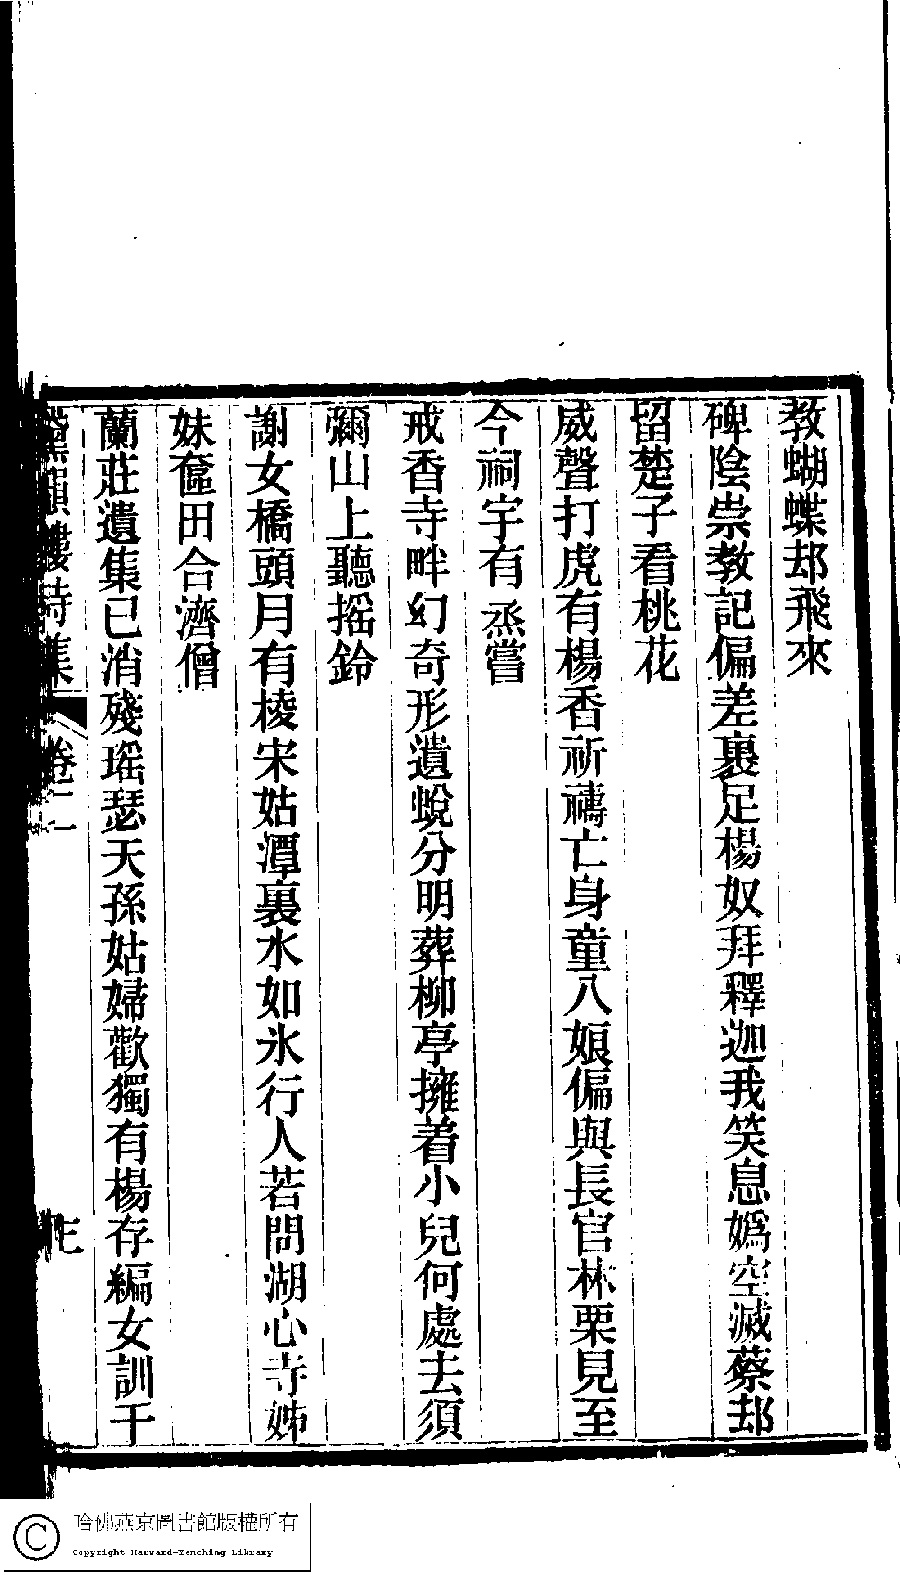 教蝴蝶刦飛來
碑陰祟教記偏差裹足楊奴拜釋迦我笑息嬀空滅蔡刦
留楚子看桃花
威聲打虎有楊香祈禱亡身童八娘偏與長官林栗見至
今祠宇有烝嘗
戒香寺畔幻奇形遺蛻分明葬柳亭擁着小兒何處去須
彌山上聽摇鈴
謝女橋頭月有棱宋姑潭裏水如氷行人若問湖心寺姊
妹奩田合濟僧
蘭莊遺集已消殘瑶瑟天孫姑婦歡獨有楊存編女訓千
黛韻樓詩集 卷二
哈佛燕京圖書館版權所有
Copyright Harvard-Yenching Library